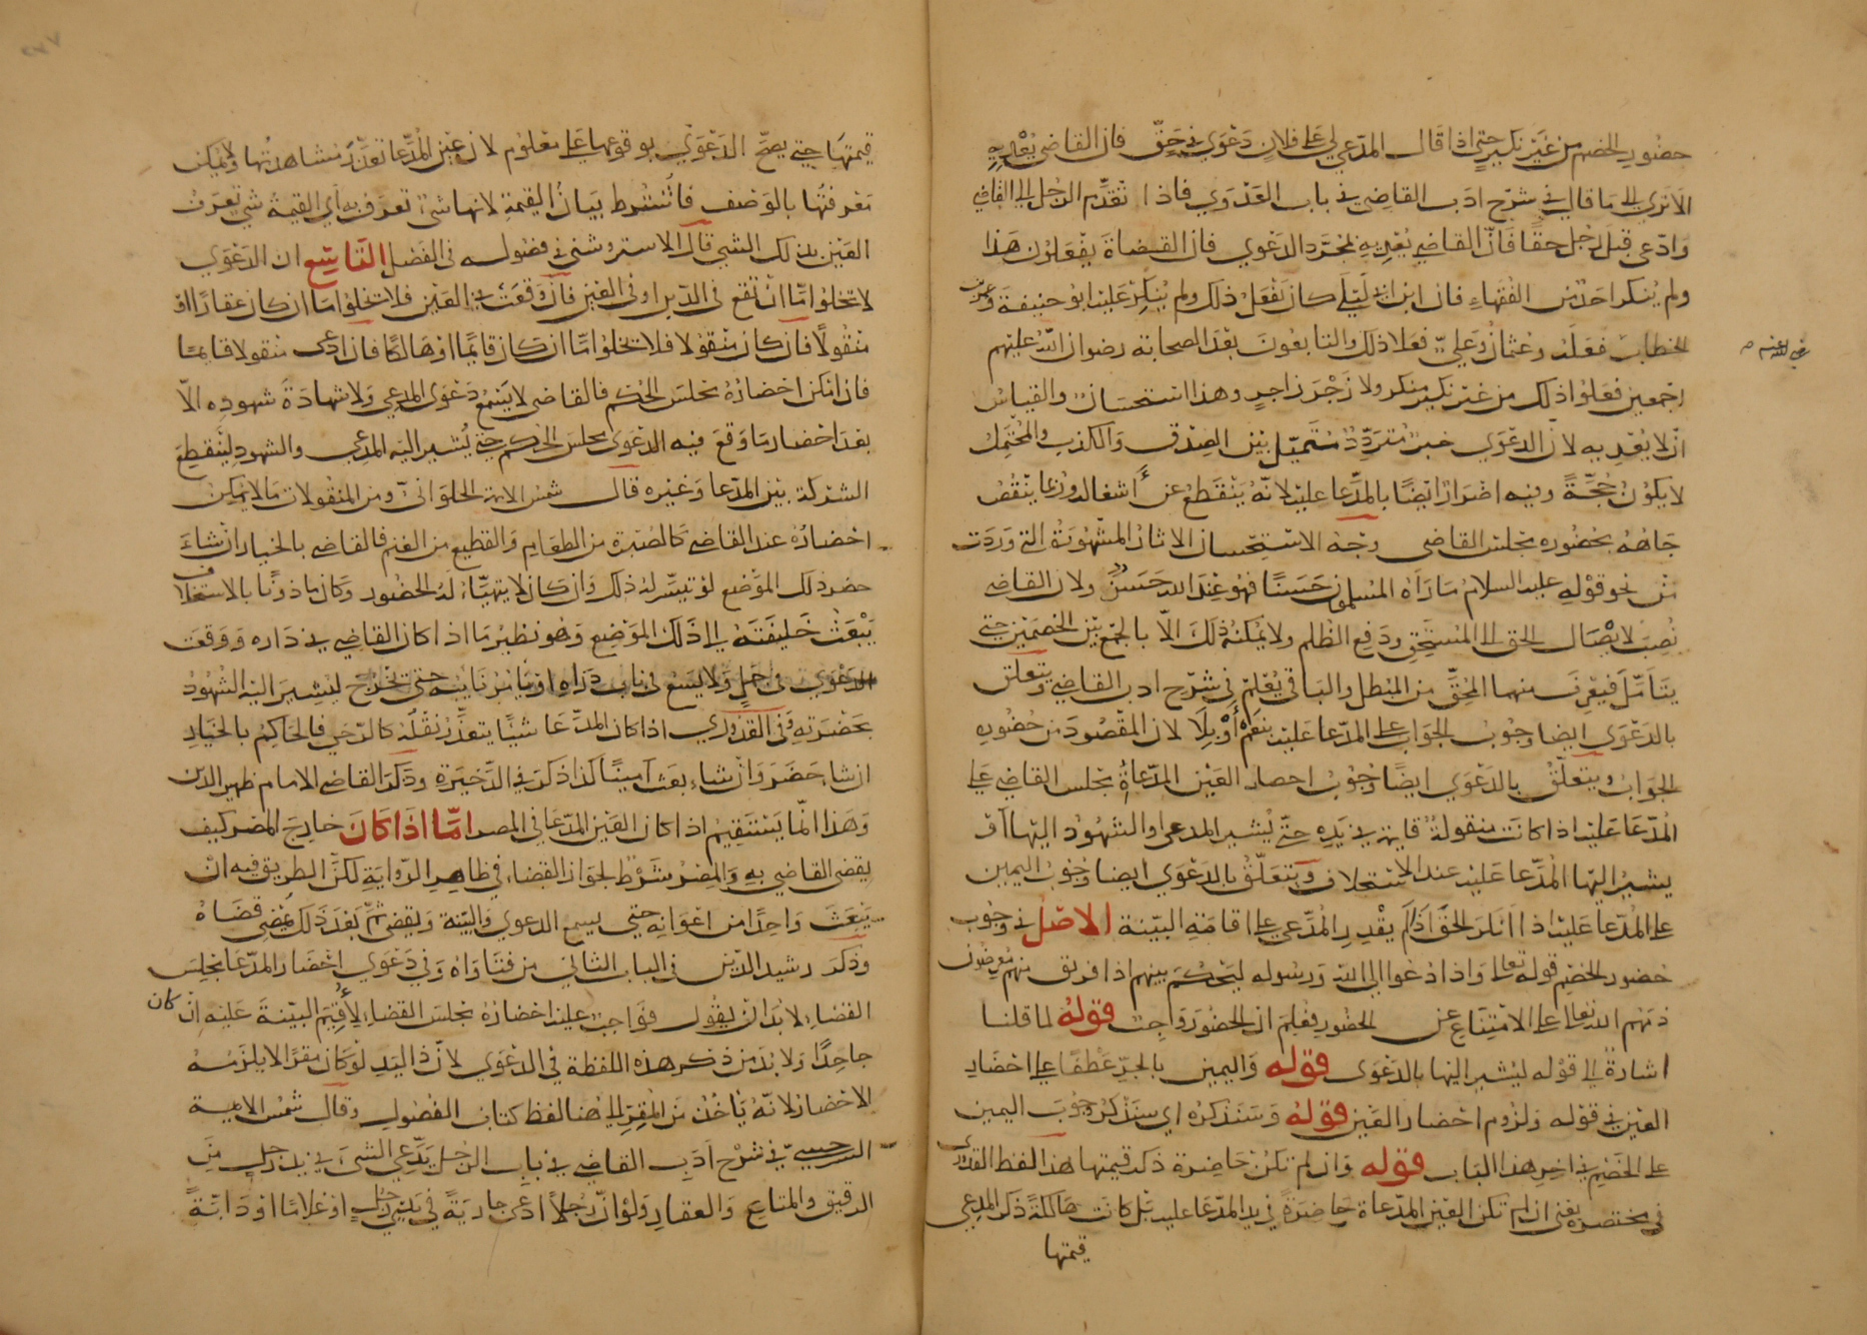 حضور الخصم من غير نكير حتى اذا قال المدعي لي على فلان دعوى في حق فان القاضي يعديه
الا ترى الى ما قال في شرح ادب القاضي في باب العدوى فاذا تقدم الرجل الى القاضي
وادعى قبل رجل حقا فان القاضي يعديه بمجرد الدعوى فان القضاة يفعلون هذا
ولم ينكر احد من الفقهاء فان ابن ابي ليلى كان يفعل ذلك ولم ينكر عليه ابو حنيفة وعمر بن
الخطاب فعله وعثمان وعلي فعلا ذلك والتابعون بعد الصحابة رضوان الله عليهم
رضي الله عنهم
اجمعين فعلوا ذلك من غير نكير منكر ولا زجر زاجر وهذا استحسان والقياس
ان لا يعديه لان الدعوى خبر متردد متميل بين الصدق والكذب والمحتمل
لا يكون حجة وفيه اضرار ايضا بالمدعا عليه لانه ينقطع عن اشغاله وربما ينقص
جاهه بحضوره مجلس القاضي وجه الاستحسان الاثار المشهورة التي وردت
من نحو قوله عليه السلام ما رآه المسلمون حسنا فهو عند الله حسن ولان القاضي
نصب لايصال الحق الى المستحق ودفع الظلم ولا يمكنه ذلك الا بالجمع بين الخصمين حتى
يتأمل فيعرف منهما المحق من المبطل والباقي يعلم في شرح ادب القاضي ويتعلق
بالدعوى ايضا وجوب الجواب على المدعا عليه بنعم أو بلا لان المقصود من حضوره
الجواب ويتعلق بالدعوى ايضا وجوب احصار العين المدعاة مجلس القاضي على
المدعا عليه اذا كانت منقولة قايمة في يده حتى يشير المدعي او الشهود اليها او
يشير اليها المدعا عليه عند الاستحلاف ويتعلق بالدعوى ايضا وجوب اليمين
على المدعا عليه اذا انكر الحق اذا لم يقدر المدعي على اقامة البينة الاصل في وجوب
حضور الخصم قوله تعالى واذا دعوا الى الله ورسوله ليحكم بينهم اذا فريق منهم معرضون
ذمهم الله تعالى على الامتناع عن الحضور فعلم ان الحضور واجب قوله لما قلنا
اشارة الى قوله ليشير اليها بالدعوى قوله واليمين بالجر عطفا على احضار
العين في قوله ولزوم احضار العين قوله وسنذكره اي سنذكر وجوب اليمين
على الخصم في اخر هذا الباب قوله وان لم تكن حاضرة ذكر قيمتها هذا لفظ القدوري
في مختصره يعني ان لم تكن العين المدعاة حاضرة في يد المدعا عليه بل كانت هالكة ذكر المدعي
قيمتها
قيمتها حتى يصح الدعوى بوقوعها على معلوم لان عين المدعا تعذر مشاهدتها ولا يمكن
معرفتها بالوصف فاشترط بيان القيمة لانها شيء تعرف به اي القيمة شي تعرف
العين بذلك الشي قال الاستروشني في فصوله في الفصل التاسع ان الدعوى
لا تخلوا اما ان تقع في الدين او في العين فان وقعت في العين فلا تخلوا اما ان كان عقارا او
منقولا فان كان منقولا فلا يخلوا اما ان كان قايما او هالكا فان ادعى منقولا قايما
فان امكن احضاره مجلس الحكم فالقاضي لا يسمع دعوى المدعي ولا شهادة شهوده الا
بعد احضار ما وقع فيه الدعوى مجلس الحكم حتى يشير اليه المدعي والشهود لينقطع
الشركة بين المدعا وغيره قال شمس الايمة الحلواني ومن المنقولات ما لا يمكن
احضاره عند القاضي كالصبرة من الطعام والقطيع من الغنم فالقاضي بالخيار ان شاء
حضر ذلك الموضع لو تيسر له ذلك وان كان لا يتهيأ له الحضور وكان ماذونا بالاستخلاف
يبعث خليفته الى ذلك الموضع وهو نظير ما اذا كان القاضي في داره ووقعت
الدعوى في جمل ولا يسع في باب داره او يامر نايبه حتى تخرج ليشير اليه الشهود
بحضرته وفي القدوري اذا كان المدعا شيئا يتعذر نقله كالرحى فالحاكم بالخيار
ان شا حضر وان شاء بعث امينا كذا ذكر في الذخيرة وذكر القاضي الامام ظهير الدين
وهذا انما يستقيم اذا كان العين المدعا في المصر اما اذا كان خارج المصر كيف
يقضي القاضي به والمصر شرط لجواز القضاء في ظاهر الرواية لكن الطريق فيه ان
يبعث واحدا من اعوانه حتى يسمع الدعوى والبينة ويقضي ثم بعد ذلك يمضي قضاه
وذكر رشيد الدين في الباب الثاني من فتاواه وفي دعوى احضار المدعا مجلس
القضاء لا بد ان يقول فواجب عليه احضاره مجلس القضاء لأقيم البينة عليه ان كان
جاحدا ولا بد من ذكر هذه اللفظة في الدعوى لان ذا اليد لو كان مقرا لا يلزمه
الاحضار لانه يأخذ من المقر الى هنا لفظ كتاب الفصول وقال شمس الايمة
السرخسي في شرح ادب القاضي في باب الرجل يدعي الشيء في يد رجل من
الرقيق والمتاع والعقار ولو ان رجلا ادعى جارية في يدي رجل او غلاما او دابة